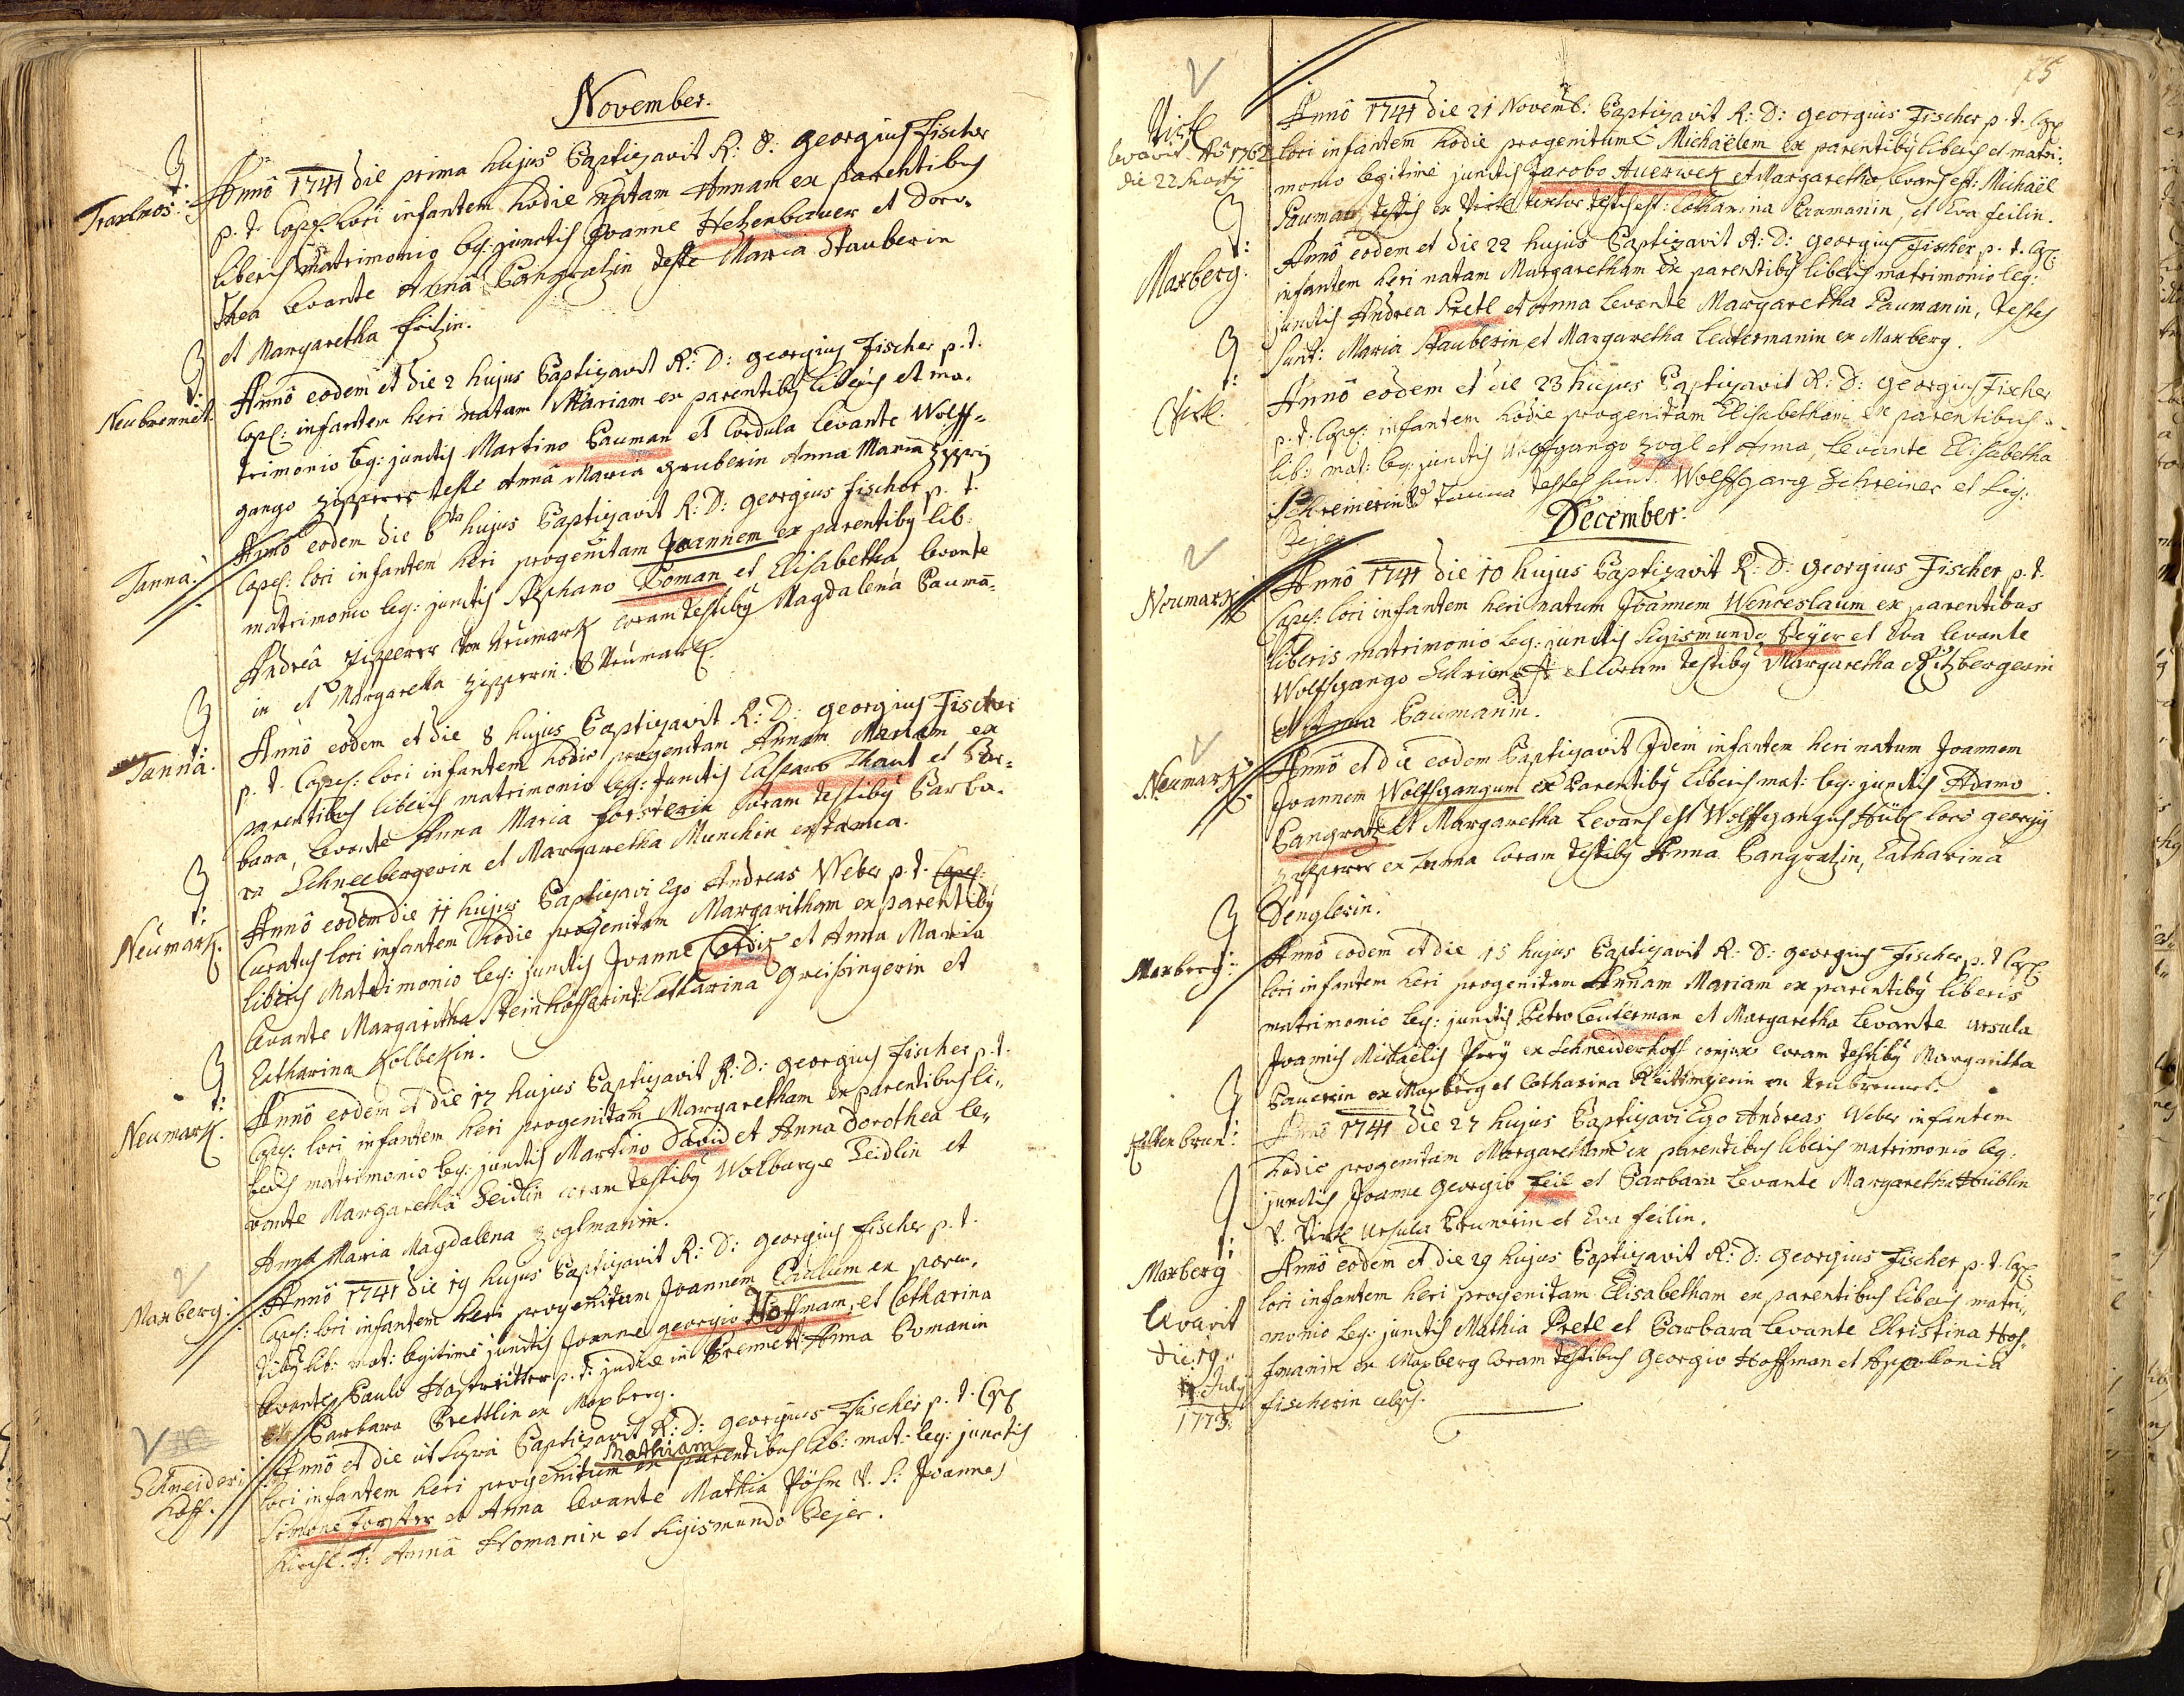 November.
Traxlmos:
Annô 1741 die prima hujus Baptizavit R: D: Georgius Fischer
p. t. Capel: loci infantem hodie natam Annam ex parentibus
liberis matrimonio leg: junctis Joanne Hetzenbauer et Doro-
thea levante Anna Pangratzin teste Maria Stauberin
et Margaretha fritzin.
Neubrennet.
Annô eodem et die 2 hujus Baptizavit R: D: Georgius Fischer p. t.
Capel: infantem heri natam Mariam ex parentibq liberis et ma-
trimonio leg: junctis Martino Pauman et Cordula levante Wolff-
gango Zipperer teste Anna Maria Gruberin Anna Maria
Tanna:
Annô eodem die 6ta hujus Baptizavit R: D: Georgius Fischer p. t.
Capel: loci infantem heri progenitam Joannem ex parentibq lib:
matrimonio leg: junctis Stephano Poman et Elisabetha levante
Andreâ Zipperer von Neumark coram testibq Magdalena Paumā-
in et Margaretha Zipperin. Neumark.
Tanna:
Annô eodem et die 8 hujus Baptizavit R: D: Georgius Fischer
p. t. Capel: loci infantem hodie progenitam Annam Mariam ex
parentibus liberis matrimonio leg: Junctis Casparo Thaut et Bar-
bara, levante Anna Maria Forsterin coram testibq Barba-
ra Schneebergerin et Margaretha Munchin ex tanna.
Neumark.
Annô eodem die 11 hujus Baptizavi Ego Andreas Weber p. t. Capel:
Curatus loci infantem hodie progenitam Margaritham ex parentibq
liberis Matrimonio leg: junctis Joanne et Anna Maria
levante Margaritha Steinhöfferin t: Catharina Greissingerin et
Catharina Kolbekin.
Neumark.
Annô eodem et die 17 hujus Baptizavit R: D: Georgius Fischer p. t.
Capel: loci infantem heri progenitam Margaretham ex parentibus li-
beris matrimonio leg: junctis Martino David et Anna Dorothea le-
vante Margaretha Seidlin coram testibq Walburga Seidlin et
Anna Maria Magdalena Zoglmanin.
Maxberg:
Annô 1741 die 19 hujus Baptizavit R: D: Georgius Fischer p. t.
Capel: loci infantem heri progenitam Joannem Paulum ex paren-
tibq lib: mat: legitimè junctis Joanne georgio Hoffmam, et Catharina
levante Paulo Hastreitter p. t. judice in Brennet: Anna Pomanin
et Barbara Prettlin ex Maxberg.
Schneider:
hoff.
Annô et die ut supra Baptizavit R: D: Georgius Fischer p. t. Cap:
Mathiam
loci infantem heri progenitum ex parentibus lib: mat: leg: junctis
Simone Forster et Anna levante Mathia Pöhm V. S: Joannes
T: Anna Homanin et Sigismundo Bejer.
75
levavit Aō 1762
die 22 Martij
Annô 1741 die 21 Novemb: Baptizavit R: D: Georgius Fischer p. t. Cap:
loci infantem hodie progenitum Michaëlem ex parentibq liberis et matri-
monio legitimè junctis Jacobo Auerwek et Margaretha, levans est: Michaël
Pauman, textor testes est: Catharina Paumanin, et Eva feilin.
Maxberg.
Annô eodem et die 22 hujus Baptizavit R: D: Georgius Fischer p. t. Cap:
infantem heri natam Margaretham ex parentibq liberis matrimonio leg:
junctis Andrea Pretl et Anna levante Margaretha Paumanin, testes
sunt: Maria Stauberin et Margaretha Leutermanin ex Maxberg.
Annô eodem et die 23 hujus Baptizavit R: D: Georgius Fischer
p. t. Capel: infantem hodie progenitam Elisabetham ex parentibus
lib: mat: leg: junctis Wolffgango Zogl et Anna, levante Elisabetha
Schreinerin tanna testes sunt: Wolffgang Schreiner et Sig:
Bejer
December.
Neumark.
Annô 1741 die 10 hujus Baptizavit R: D: Georgius Fischer p. t.
Capel: loci infantem heri natum Joannem Wenceslaum ex parentibus
liberis matrimonio leg: junctis Sigismundo Peyer et Eva levante
Wolffgango et coram testibq Margaretha Ritzbergerin
et Anna Paumanin.
Neumark.
Annô et die eodem Baptizavit Idem infantem heri natum Joannem
Joannem Wolffgangum ex Parentibq liberis mat: leg: junctis Adamo
Pangratz et Margaretha levans est Wolffgangus Hübl loco georgij
Zipperer ex tanna coram testibq Anna Pangratzin, Catharina
Denglerin.
Maxberg:
Annô eodem et die 15 hujus Baptizavit R: D: Georgius Fischer p. t. Cap:
loci infantem heri progenitam Annam Mariam ex parentibq liberis
matrimonio leg: junctis Petro Leüterman et Margaretha levante Ursula
Joannis Michaëlis ex Schneiderhoff conjux coram testibq Margaritha
Pauerin ex Maxberg et Catharina Reittmejerin ex Neubrennet.
Annô 1741 die 27 hujus Baptizavi Ego Andreas Weber infantem
hodie progenitam Margaretham ex parentibus liberis matrimonio leg:
junctis Joanne Georgio Feil et Barbara levante Margaretha Hüblin
Ursula et Eva feilin.
Maxberg
levavit
die 19
July
1773.
Annô eodem et die 29 hujus Baptizavit R: D: Georgius Fischer p. t. Cap:
loci infantem heri progenitam Elisabetham ex parentibus liberis matri-
monio leg: junctis Mathia Pretl et Barbara levante Christina Hof-
fmanin ex Maxberg coram testibus Georgio Hoffman et Appollonia
fischerin